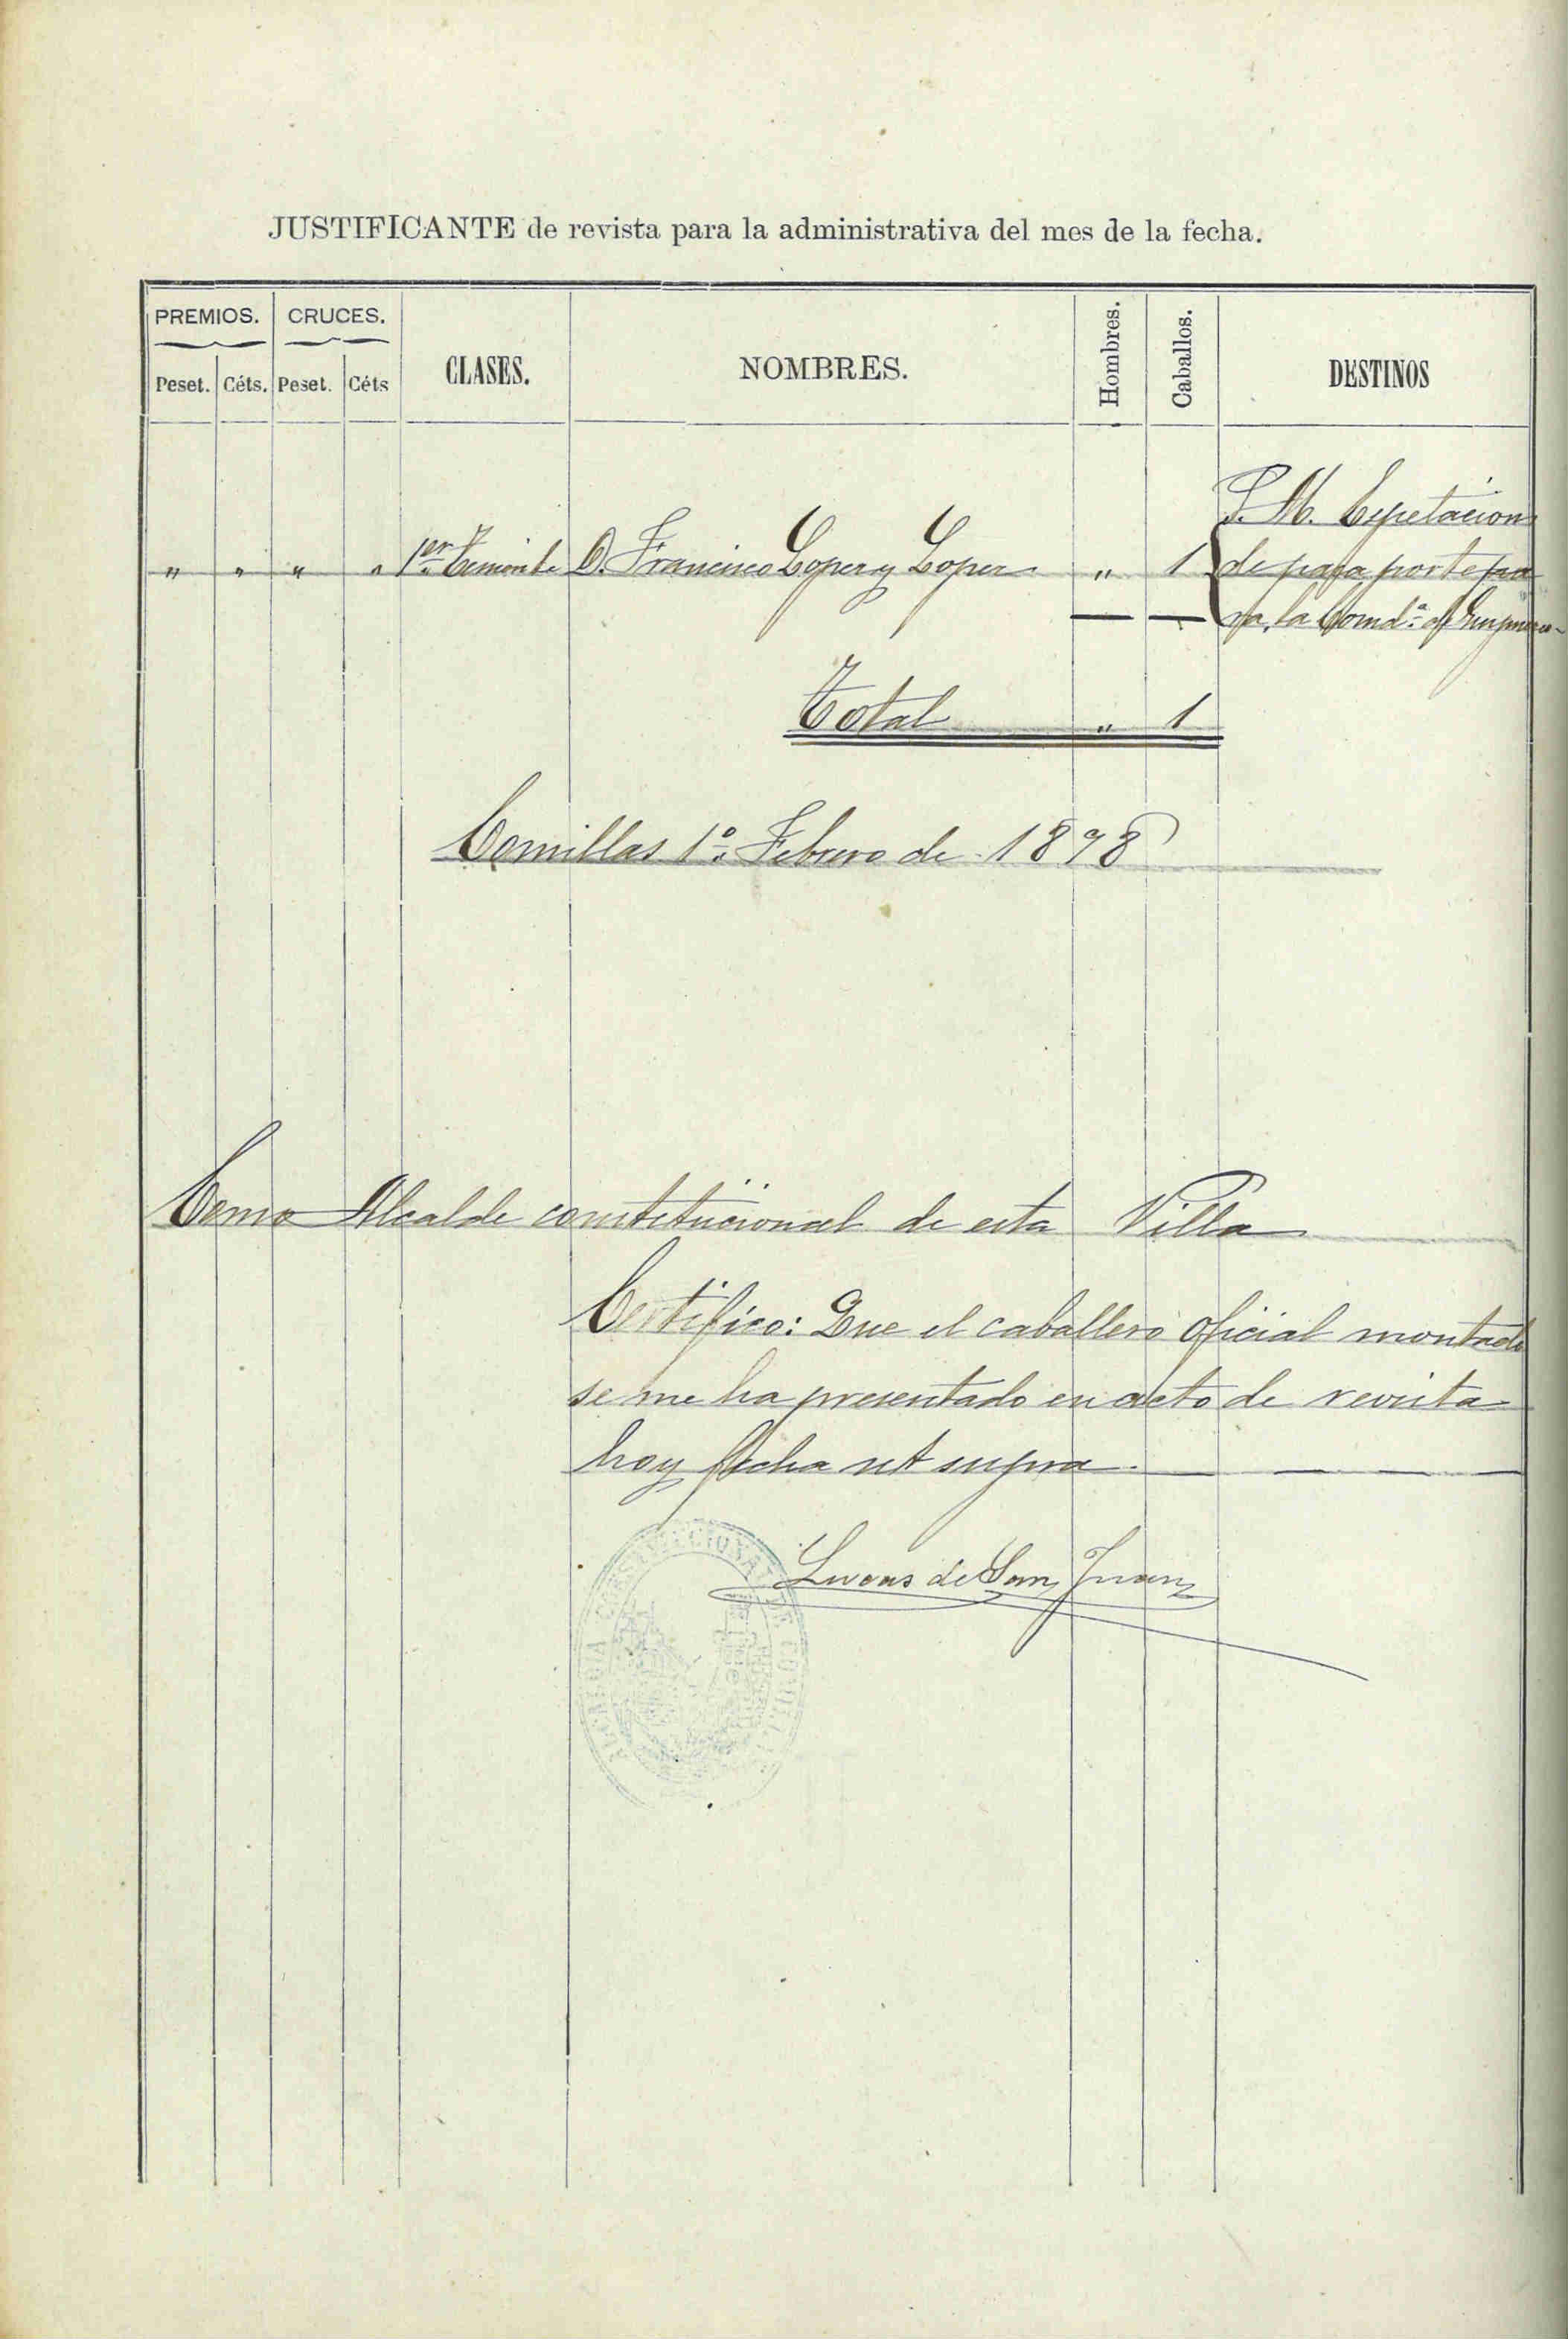 JUSTIFICANTE de revista para la administrativa del mes de la fecha.
PREMIOS. CRUCES. CLASES. NOMBRES. Hombres. Caballos. DESTINOS
Peset. Céts. Peset. Céts
P. M. Espetacion
" " " " 1er Teniente D. Francisco Lopez y Lopez " 1 de pasaporte pa
ra la Comd.ª de
Total " 1
Comillas 1º Febrero de 1898
Como Alcalde constitucional de esta Villa
Certifico: Que el caballero oficial montado
se me ha presentado en acto de revista
hoy fecha ut supra.
Lucas de San Juan
ALCALDIA CONSTITUCIONAL DE COMILLAS